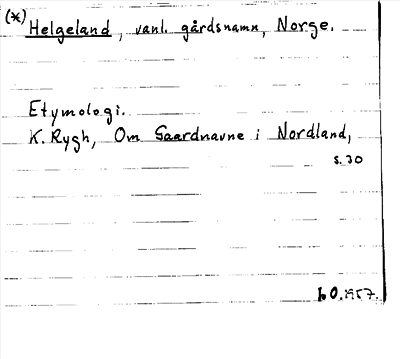 (*) Helgeland, vanl. gårdsnamn, Norge.
Etymologi.
K. Rygh, Om Gaardnavne i Nordland,
s. 30
L O. 1957.